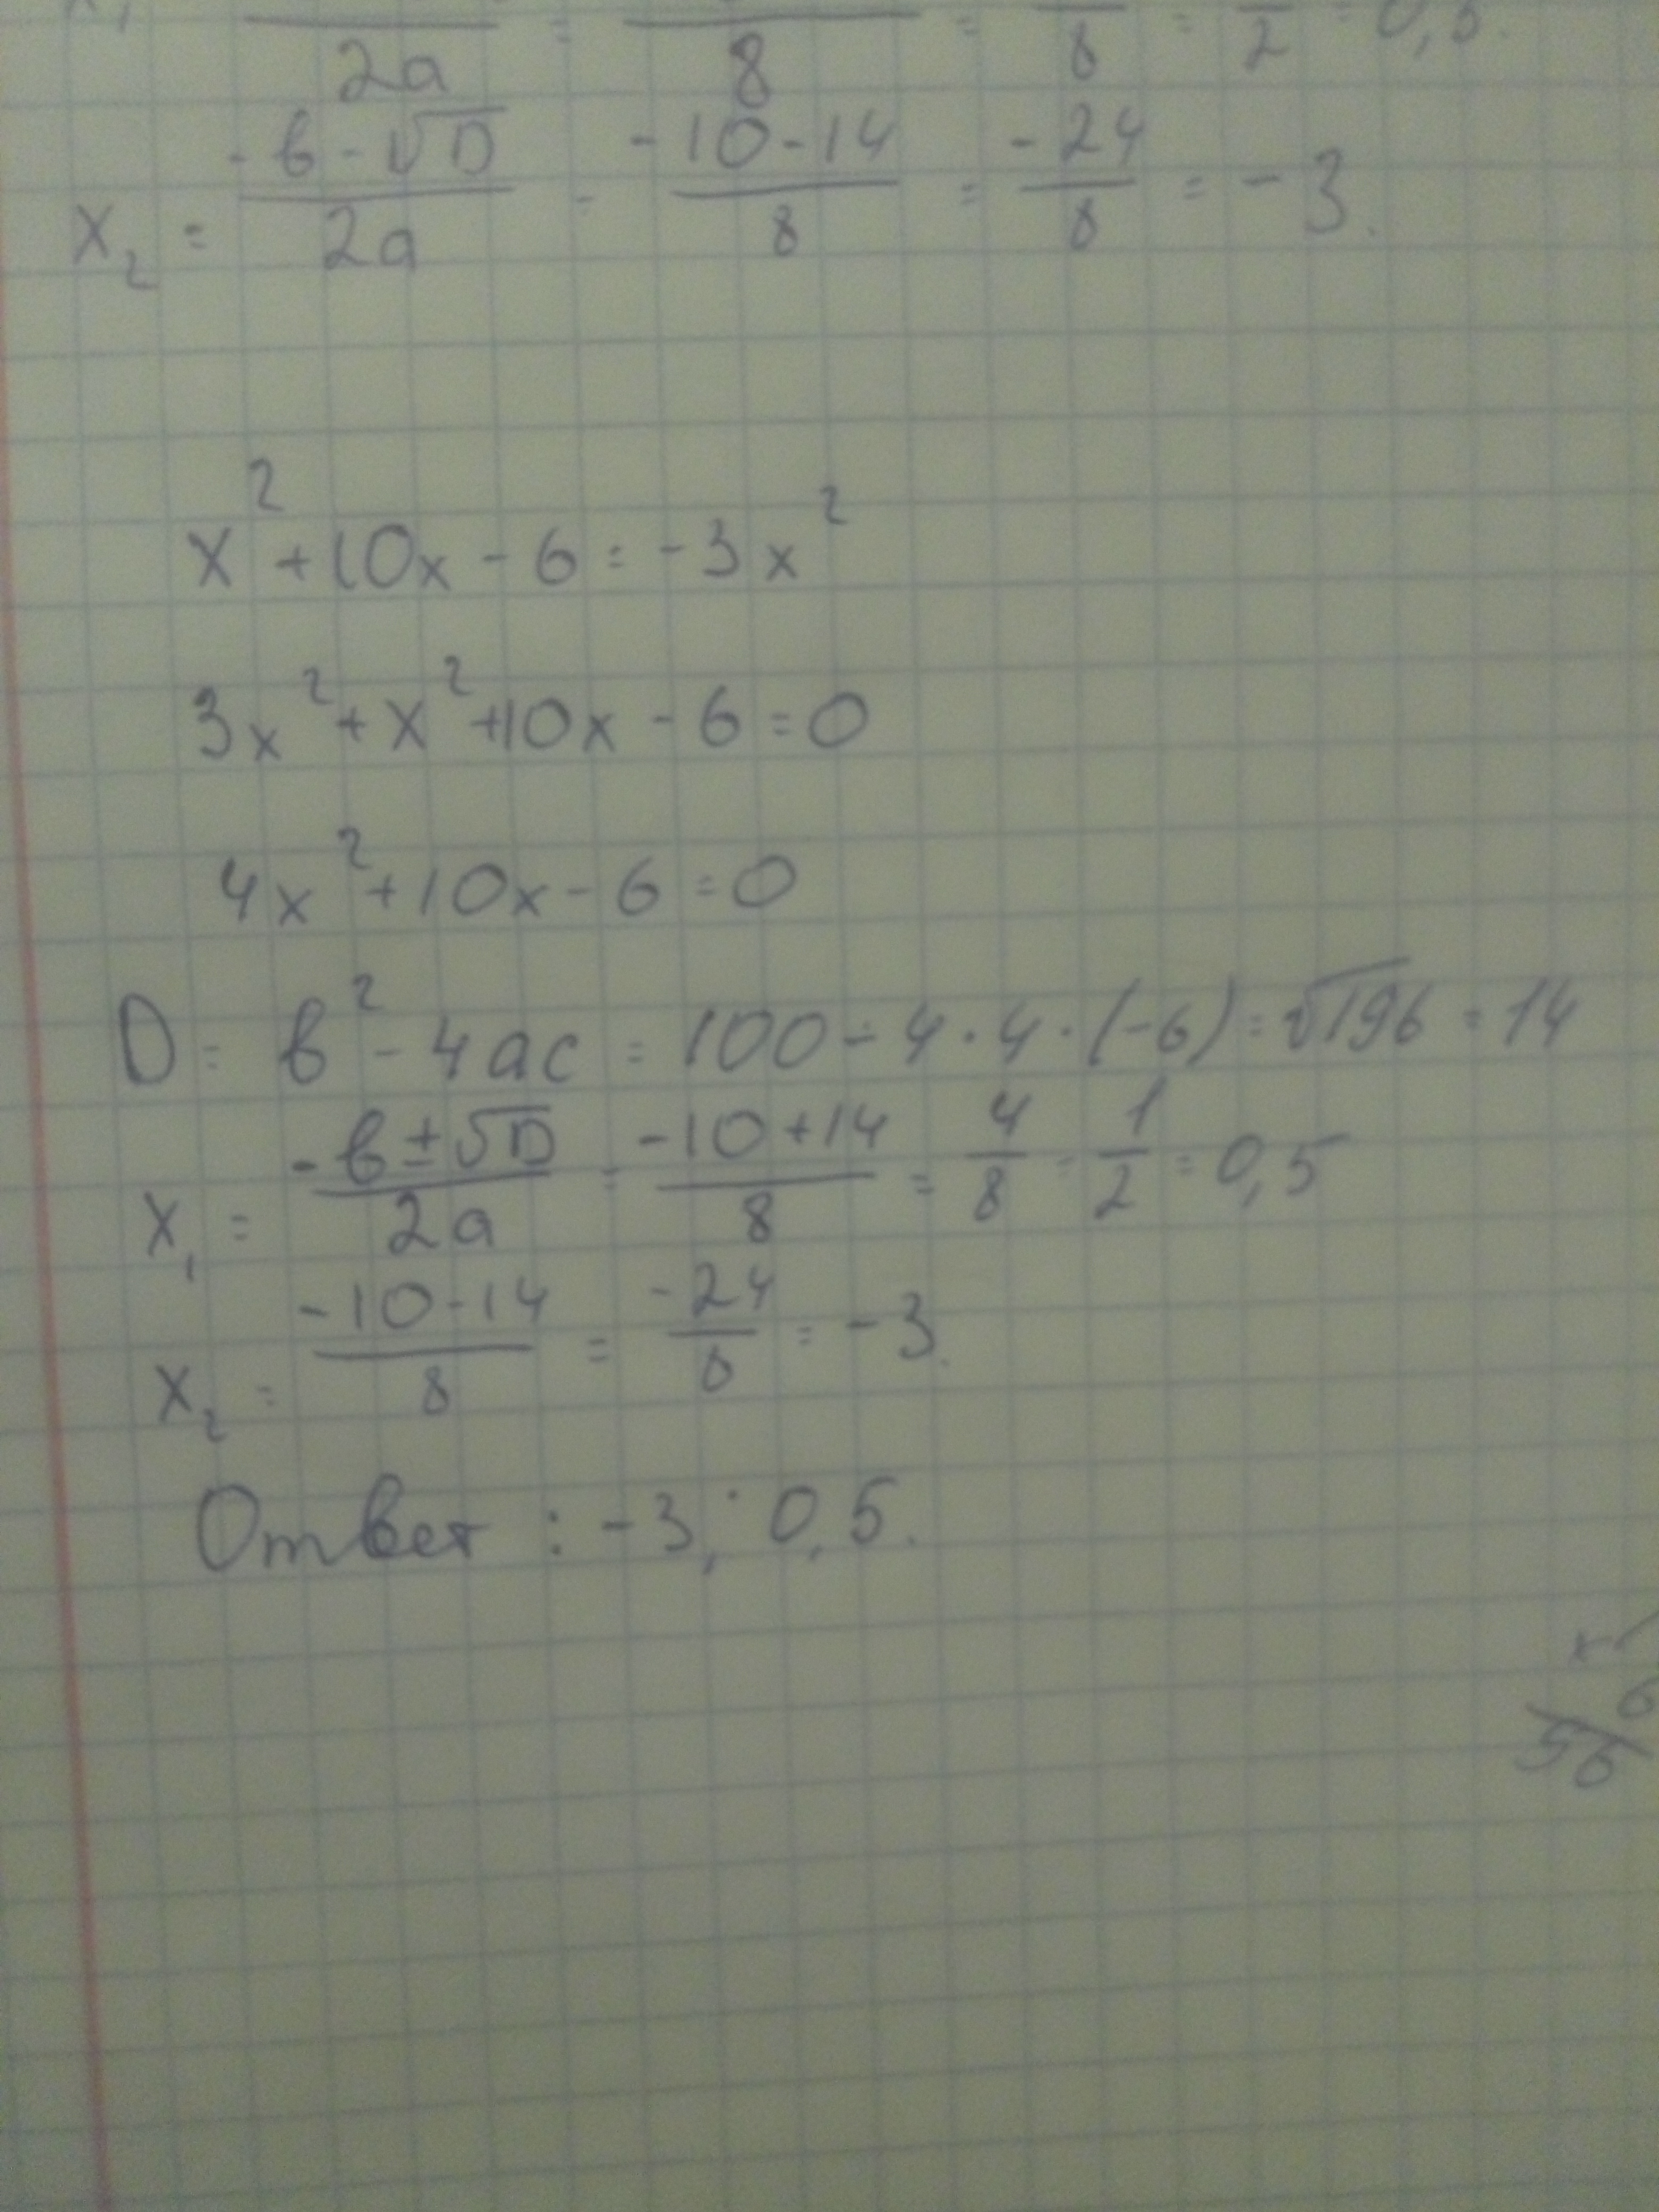 2a = 8 = 8 = 2 = 0,5.
x₂ = (-b-√D)/2a = (-10-14)/8 = -24/8 = -3.
x²+10x-6=-3x²
3x²+x²+10x-6=0
4x²+10x-6=0
D = b²-4ac = 100-4·4·(-6)=√196=14
x₁ = (-b±√D)/2a = (-10+14)/8 = 4/8 = 1/2 = 0,5
x₂ = (-10-14)/8 = -24/8 = -3.
Ответ : -3; 0,5.